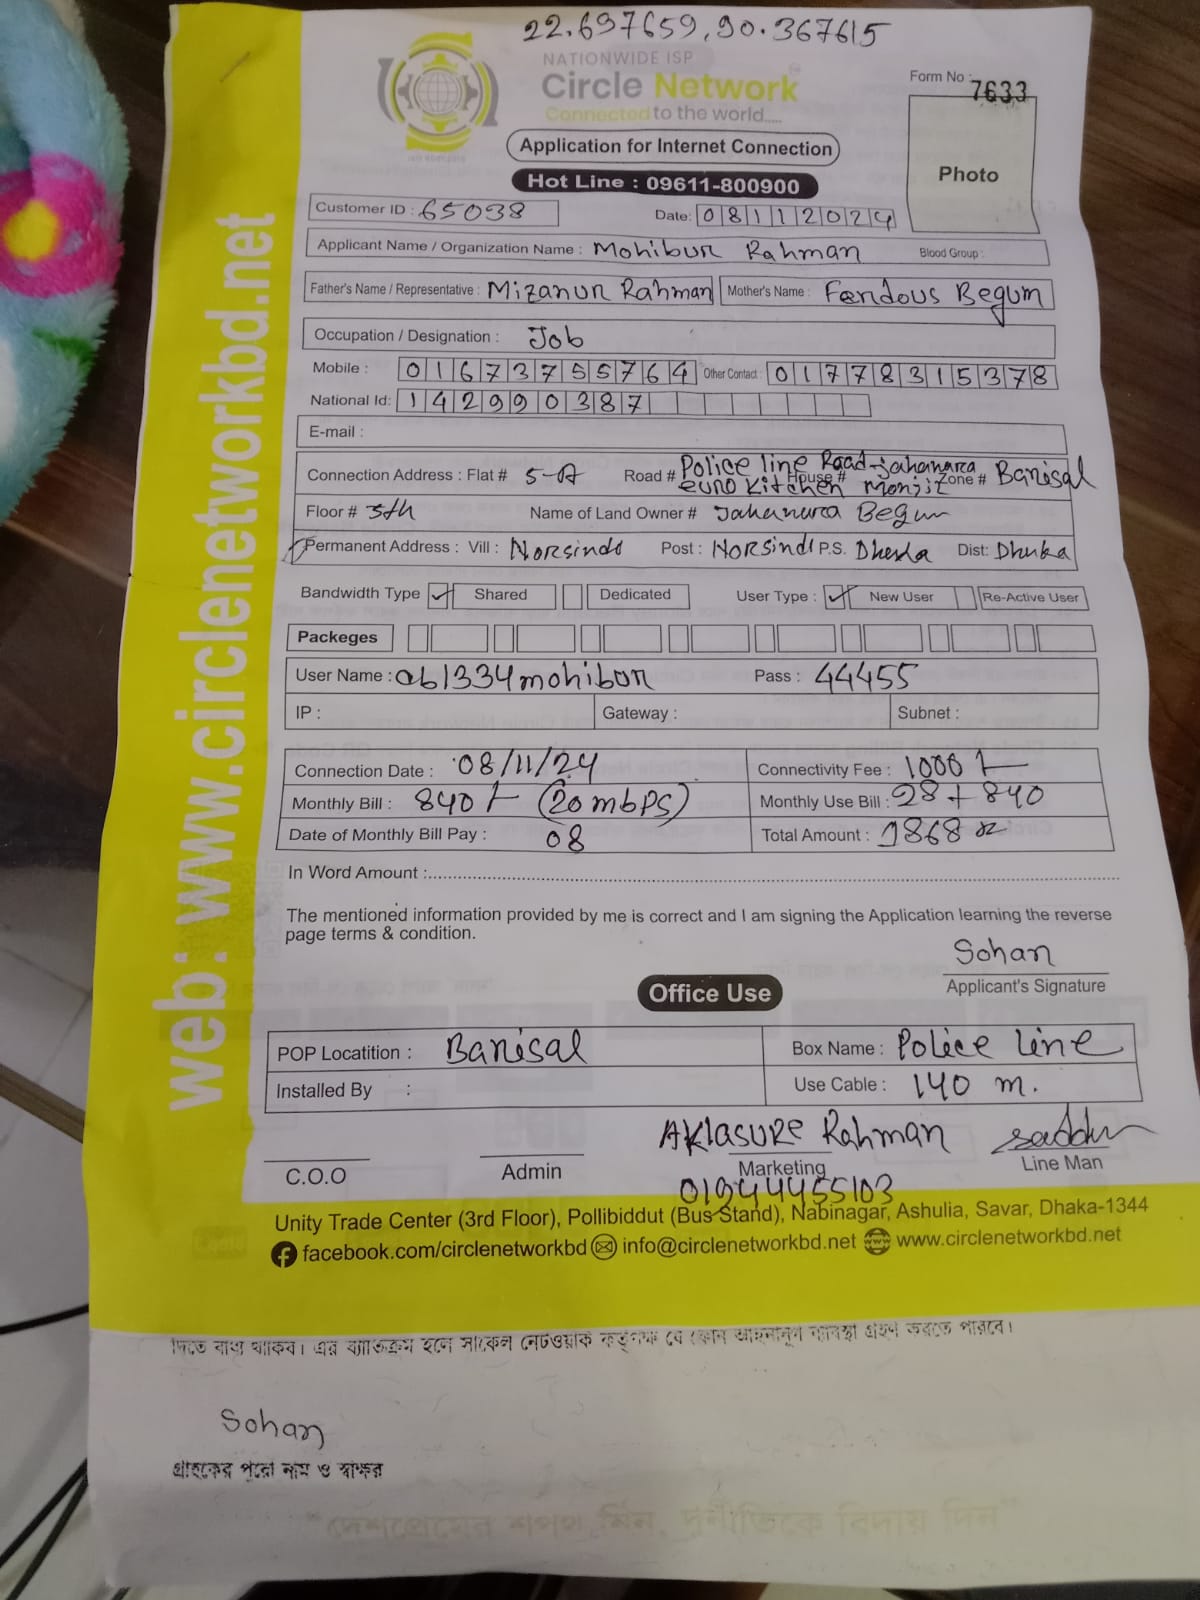 22.697659, 90.367615
NATIONWIDE ISP
Circle Network
Connected to the world.....
Form No : 7633
Application for Internet Connection
Photo
Hot Line : 09611-800900
Customer ID : 65038 Date: 08112024
Applicant Name / Organization Name : Mohibur Rahman Blood Group :
Father's Name / Representative : Mizanur Rahman Mother's Name : Ferdous Begum
Occupation / Designation : Job
Mobile : 01673755764 Other Contact : 01778315378
National Id: 1429990387
E-mail :
Connection Address : Flat # 5-A Road # Police line Road-Jahanara House # euro kitchen monjil Zone # Barisal
Floor # 5th Name of Land Owner # Jahanura Begum
Permanent Address : Vill : Norsindi Post : Norsindi P.S. Dhaka Dist: Dhaka
Bandwidth Type ✓ Shared Dedicated User Type : ✓ New User Re-Active User
Packeges
User Name : cb1334mohibur Pass : 44455
IP : Gateway : Subnet :
Connection Date : 08/11/24 Connectivity Fee : 1000/-
Monthly Bill : 840/- (20 mbps) Monthly Use Bill : 28+840
Date of Monthly Bill Pay : 08 Total Amount : 1868
In Word Amount :
The mentioned information provided by me is correct and I am signing the Application learning the reverse
page terms & condition.
Sohan
Applicant's Signature
Office Use
POP Locatition : Barisal Box Name : Police line
Installed By : Use Cable : 140 m.
Aklasure Rahman
C.O.O Admin Marketing Line Man
01944455103
Unity Trade Center (3rd Floor), Pollibiddut (Bus Stand), Nabinagar, Ashulia, Savar, Dhaka-1344
facebook.com/circlenetworkbd info@circlenetworkbd.net www.circlenetworkbd.net
web: www.circlenetworkbd.net
দিতে বাধ্য থাকিব। এর ব্যতিক্রম হলে সার্কেল নেটওয়ার্ক কর্তৃপক্ষ যে কোন আইনানুগ ব্যবস্থা গ্রহণ করতে পারবে।
Sohan
গ্রাহকের পুরো নাম ও স্বাক্ষর
"দেশপ্রেমের শপথ নিন, দুর্নীতিকে বিদায় দিন"